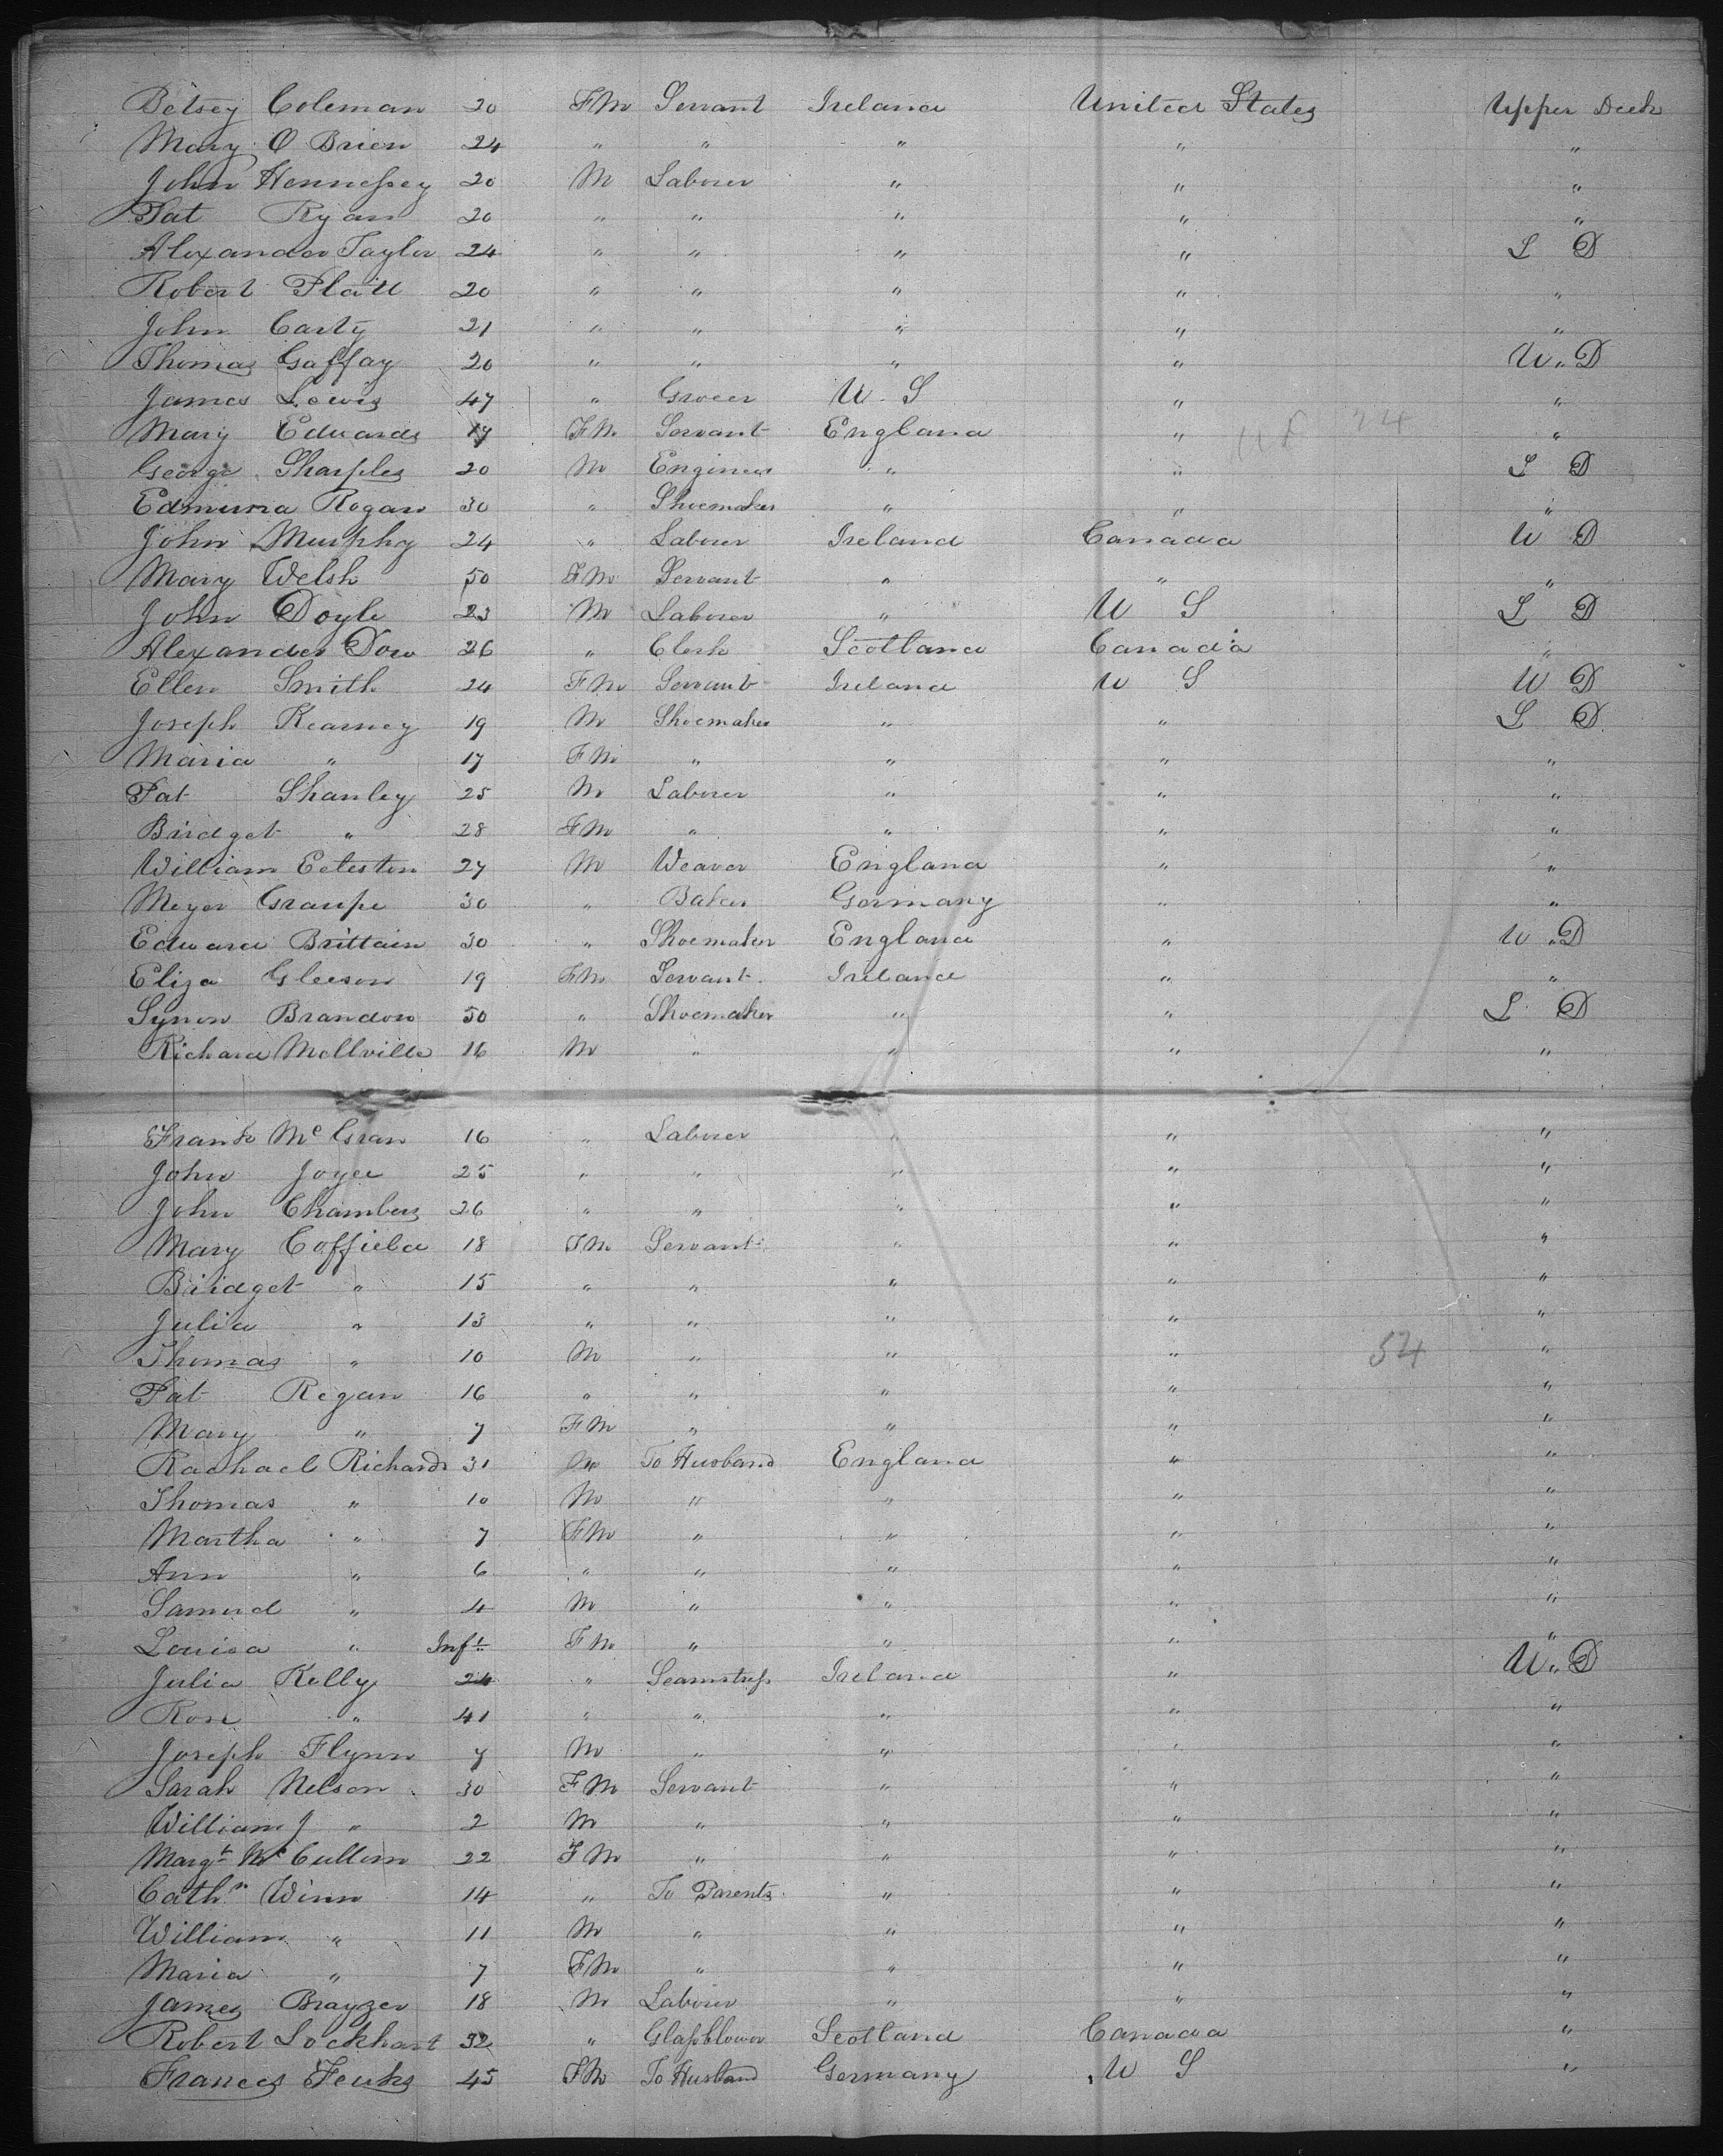 Betsey Coleman 20 FM Servant Ireland United States Upper Deck
Mary O Brien 24 " " " " "
John Hennessey 20 M Laborer " " "
Pat Ryan 20 " " " " "
Alexander Taylor 24 " " " " L D
Robert Platt 20 " " " " "
John Carty 21 " " " " "
Thomas Gaffay 20 " " " " U " D
James Lewis 47 " Grocer U S " "
Mary Edwards 17 FM Servant England " "
George Sharples 20 M Engineer " " L D
Edmund Rogan 30 " Shoemaker " " "
John Murphy 24 " Laborer Ireland Canada U D
Mary Welsh 50 FM Servant " " "
John Doyle 23 M Laborer " U S L D
Alexander Dow 26 " Clerk Scotland Canada "
Ellen Smith 24 FM Servant Ireland U S U D
Joseph Kearney 19 M Shoemaker " " L D
Maria " 17 FM " " " "
Pat Shanley 25 M Laborer " " "
Bridget " 28 FM " " " "
William Ecleston 27 M Weaver England " "
Meyer Graupe 30 " Baker Germany " "
Edward Brittain 30 " Shoemaker England " U " D
Eliza Gleeson 19 FM Servant Ireland " "
Synon Brandon 50 " Shoemaker " " L D
Richard McIlville 16 M " " " "
Frank McGran 16 " Laborer " " "
John Joyce 25 " " " " "
John Chambers 26 " " " " "
Mary Coffield 18 FM Servant " " "
Bridget " 15 " " " " "
Julia " 13 " " " " "
Thomas " 10 M " " " 54 "
Pat Regan 16 " " " " "
Mary " 7 FM " " " "
Rachael Richards 31 " To Husband England " "
Thomas " 10 M " " " "
Martha " 7 FM " " " "
Ann " 6 " " " " "
Samuel " 4 M " " " "
Louisa " Inft FM " " " "
Julia Kelly 24 " Seamstress Ireland " U " D
Rose " 41 " " " " "
Joseph Flynn 7 M " " " "
Sarah Nelson 30 FM Servant " " "
William J " 2 M " " " "
Margt McCullom 22 FM " " " "
Cathn Winn 14 " To Parents " " "
William " 11 M " " " "
Maria " 7 FM " " " "
James Brayzer 18 M Laborer " " "
Robert Lockhart 32 " Glassblower Scotland Canada "
Frances Feuks 45 FM To Husband Germany U S "